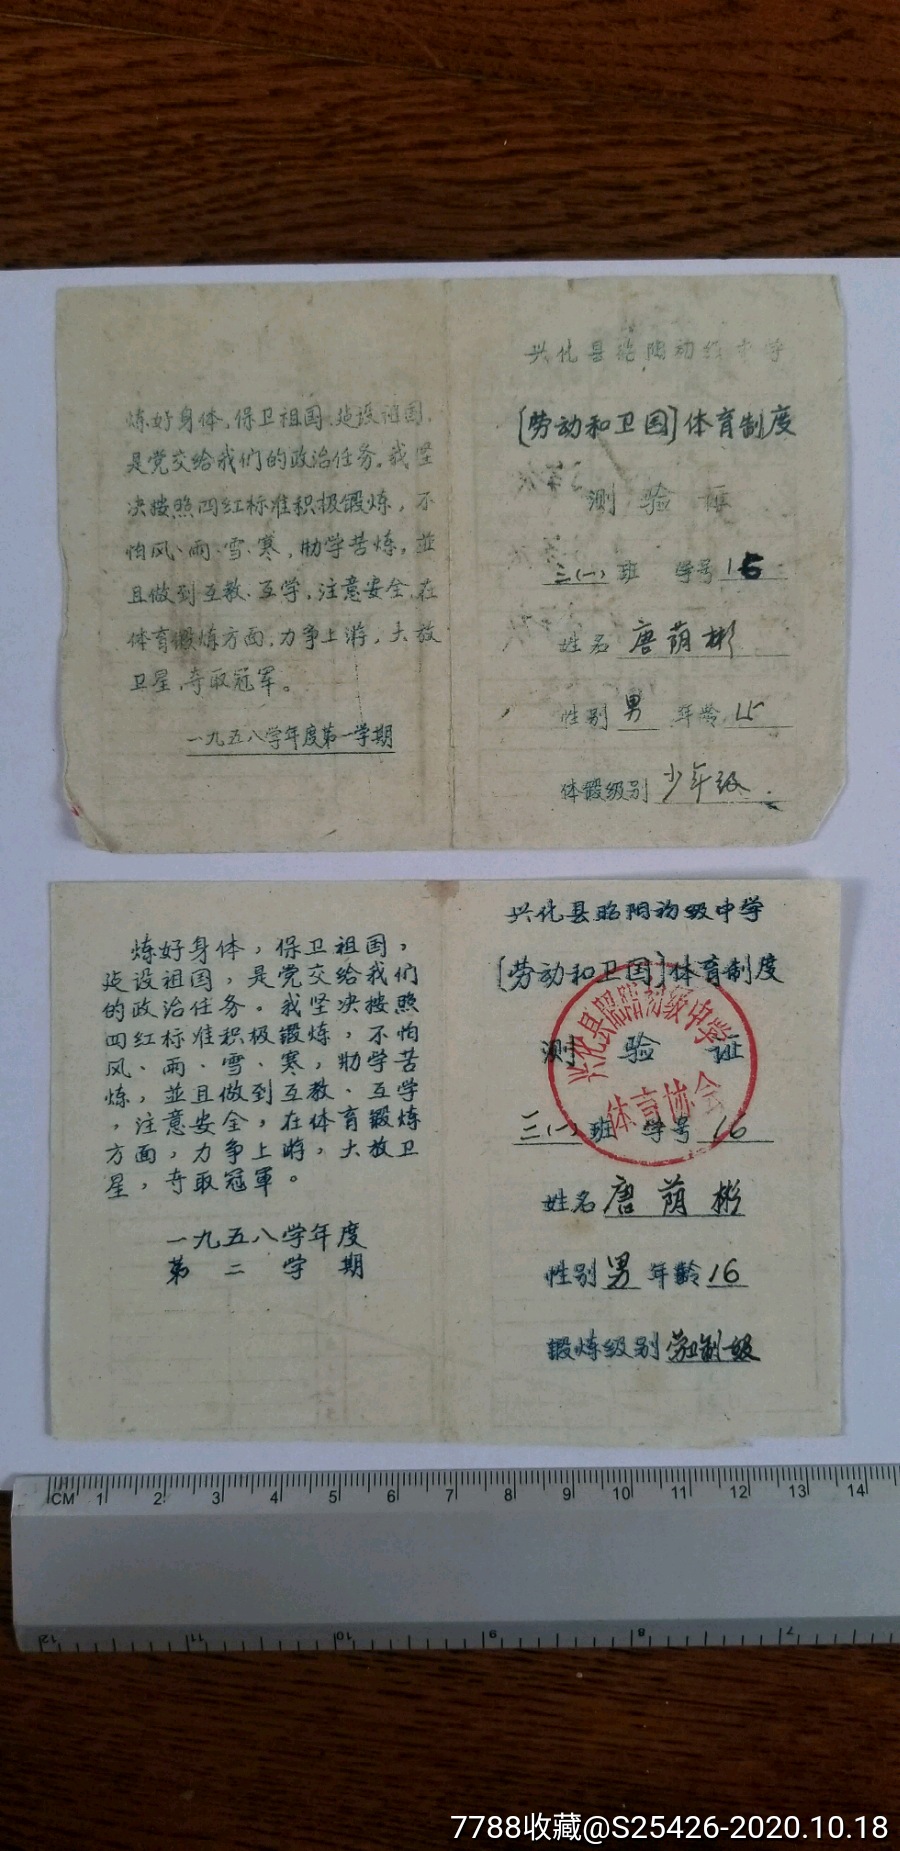 炼好身体,保卫祖国,建设祖国,
是党交给我们的政治任务。我坚
决按照四红标准积极锻炼,不
怕风、雨、雪、寒,勤学苦炼,並
且做到互教、互学,注意安全,在
体育锻炼方面,力争上游,大放
卫星,夺取冠军。
一九五八学年度第一学期
兴化县昭阳初级中学
[劳动和卫国]体育制度
测验
三(一)班 学号
姓名 唐荫彬
性别 男 年龄 15
体锻级别 少年级
炼好身体,保卫祖国,
建设祖国,是党交给我们
的政治任务。我坚决按照
四红标准积极锻炼,不怕
风、雨、雪、寒,勤学苦
炼,並且做到互教、互学
,注意安全,在体育锻炼
方面,力争上游,大放卫
星,夺取冠軍。
一九五八学年度
第二学期
兴化县昭阳初级中学
[劳动和卫国]体育制度
测验证
三(一)班 学号 16
姓名 唐荫彬
性别 男 年龄 16
锻炼级别 劳卫制一级
兴化县昭阳初级中学
体育协会
CM 1 2 3 4 5 6 7 8 9 10 11 12 13 14
12 11 10 9 8 7
7788收藏@S25426-2020.10.18